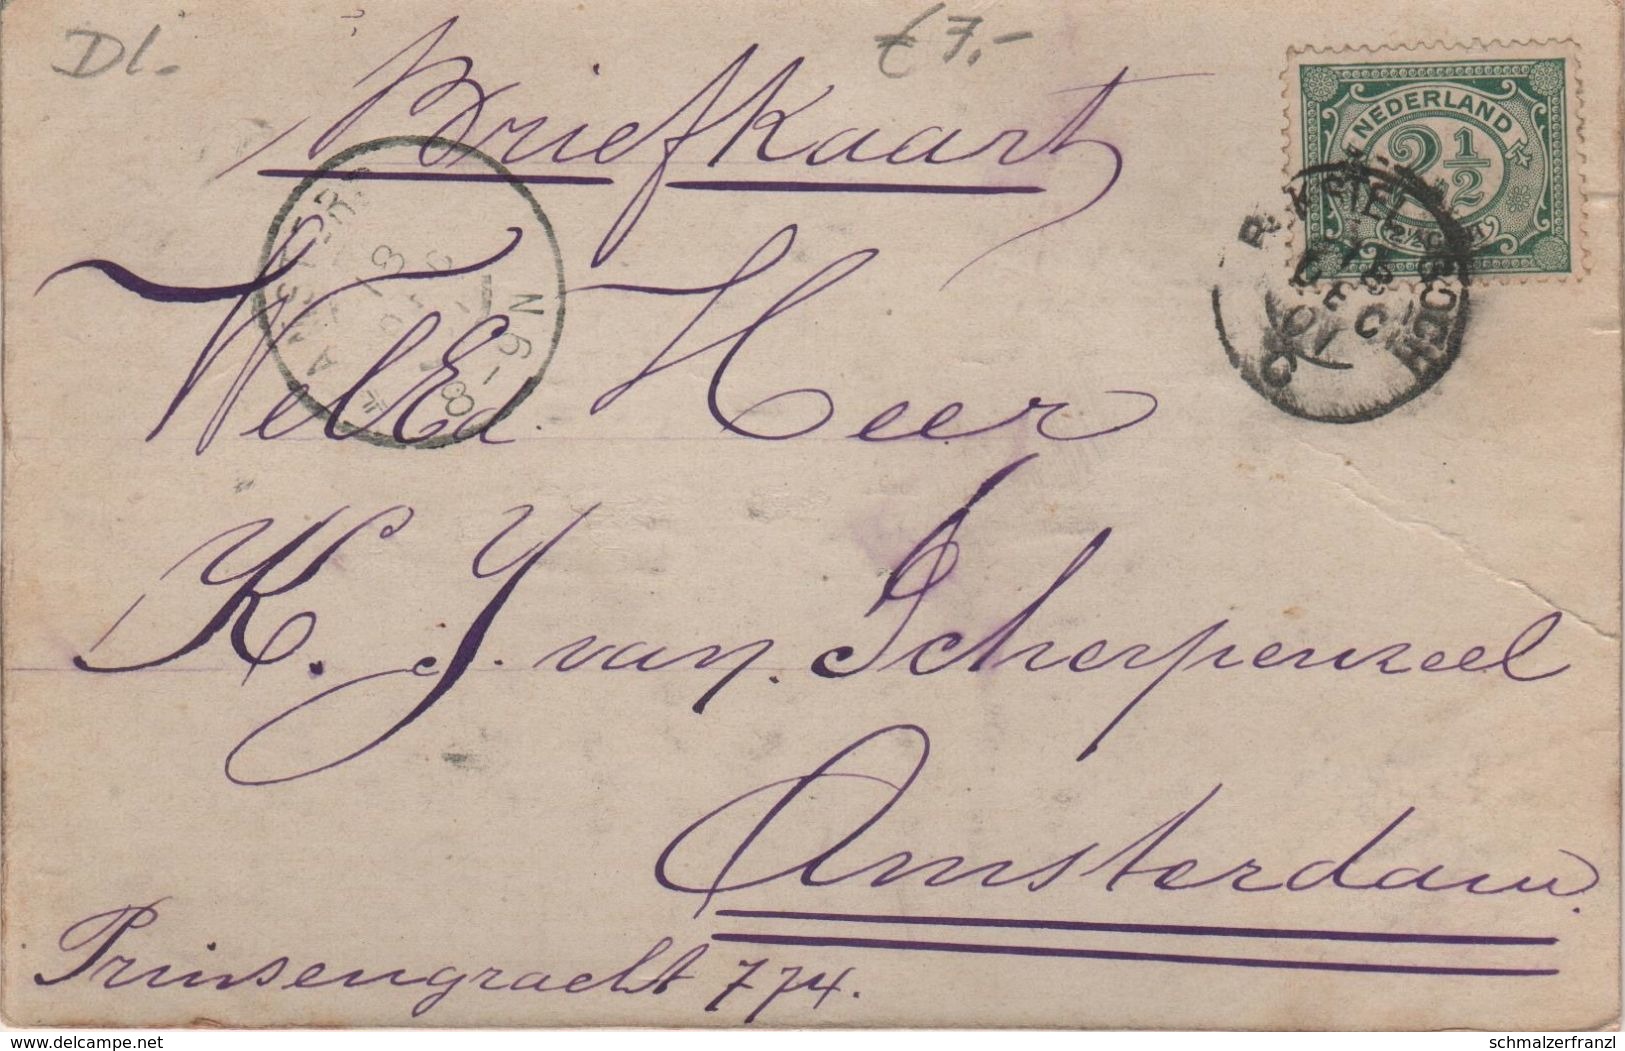 Dl.
€ 7,-
Briefkaart
NEDERLAND
2 1/2
AMSTERD
N 6-8
WelEd. Heer
K. J. van Scherpenzeel
Amsterdam.
Prinsengracht 774.
www.delcampe.net
schmalzerfranzl